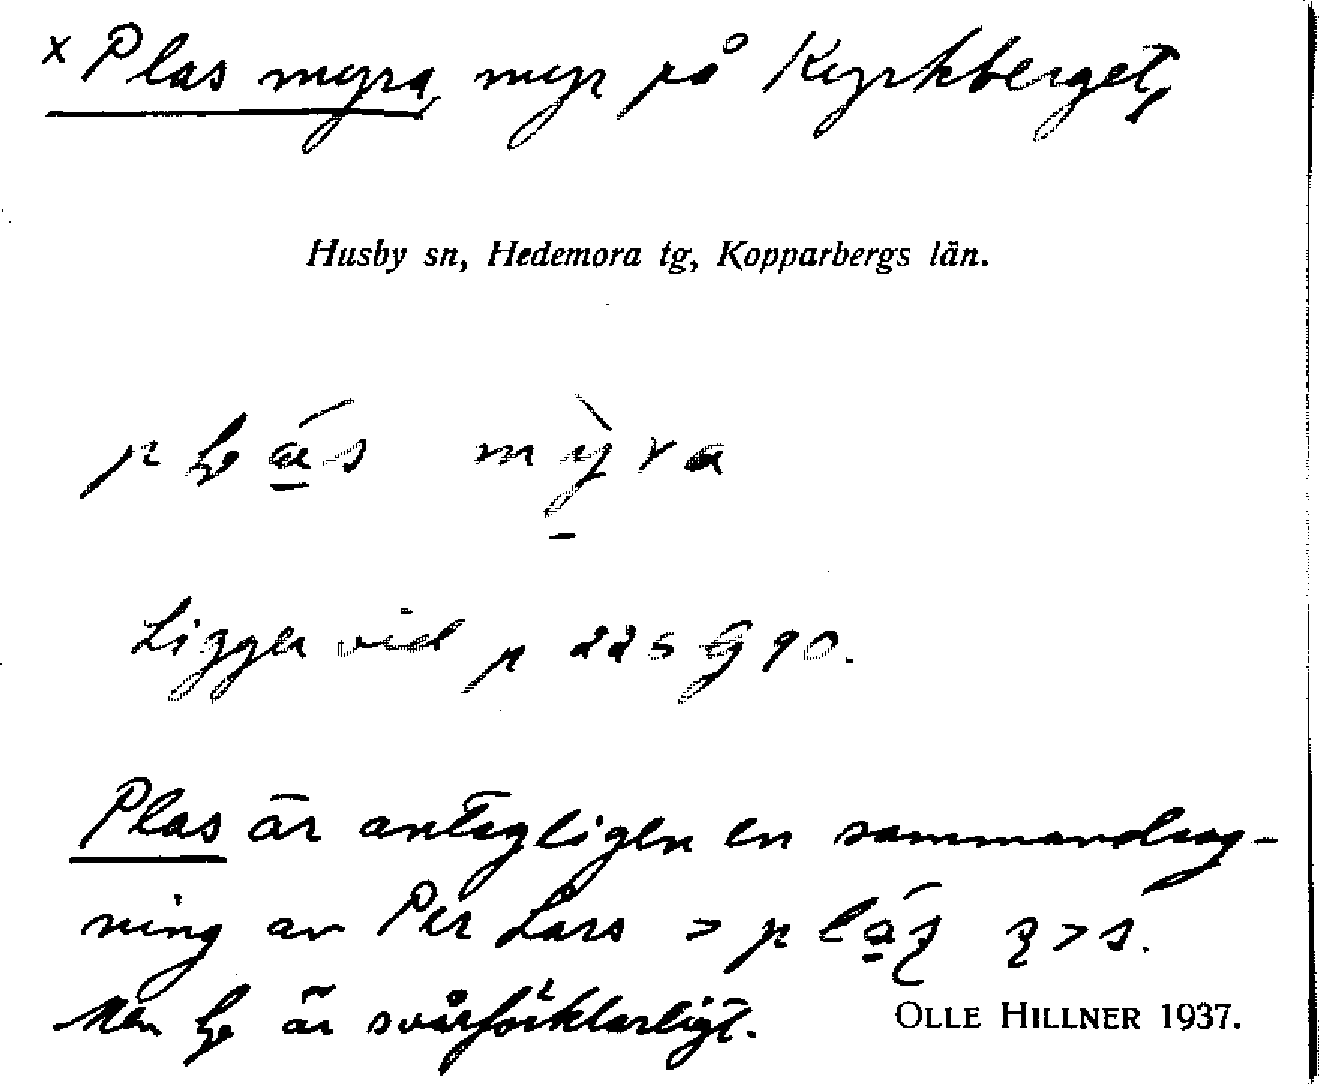 x Plas myra, myr på Kyrkberget,
Husby sn, Hedemora tg, Kopparbergs län.
myra
Ligger vid p 225 90.
Plas är antagligen en sammandrag-
ning av Per Lars >
Men är svårförklarligt.
OLLE HILLNER 1937.